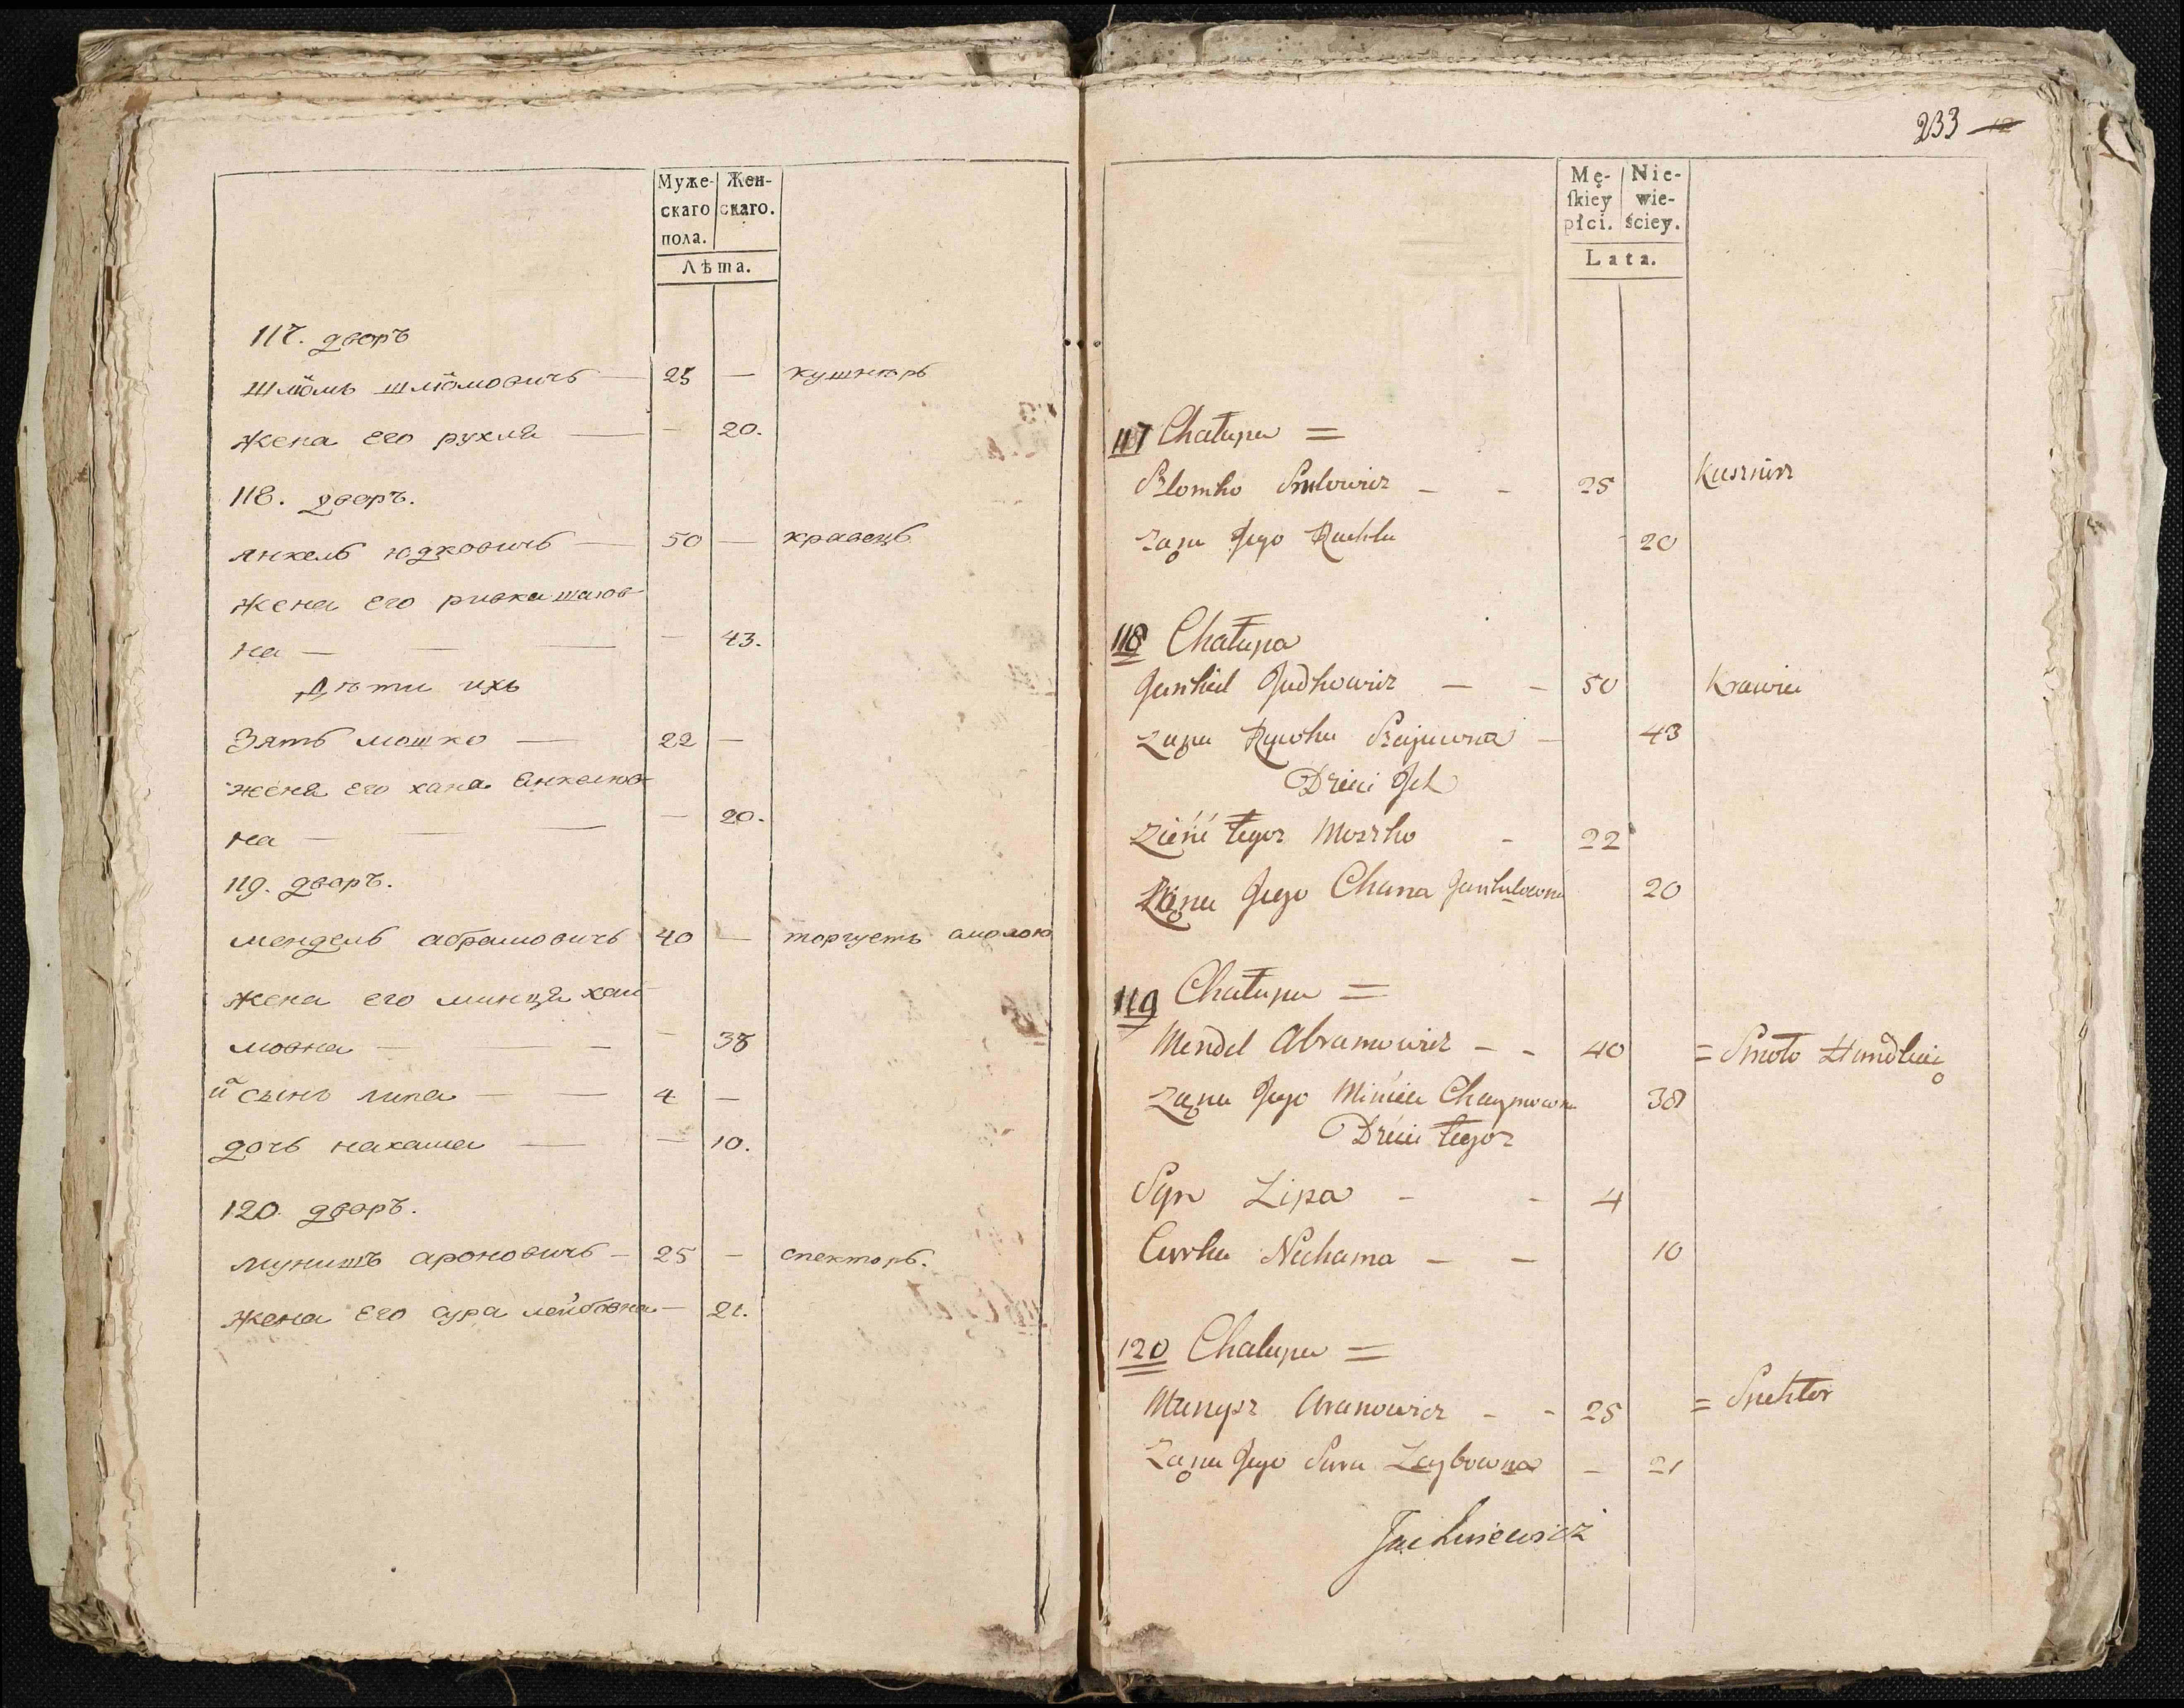 Муже- Жен-
скаго скаго.
пола.
Лѣта.
117. дворъ
шлiомъ шлiомовичъ — 25 — кушнѣръ
жена его рухля — — 20.
118. дворъ.
янкель юдковичъ — 50 — кравецъ
жена его ривка шаюв-
на — — — — 43.
Дѣти ихъ
Зять мошко — 22 —
жена его хана янкелюв-
на — — — 20.
119. дворъ.
мендель абрамовичъ 40 — торгуетъ смолою
жена его минця хаи-
мовна — — — — 38
и҃ сынъ липа — — 4 —
дочь нахама — — 10.
120. дворъ.
мунишъ ароновичъ — 25 — спекторъ.
жена его сура лейбовна — 21.
233 12
Mę- Nie-
ſkiey wie-
płci. ściey.
Lata.
117 Chałupa =
Szlomko - - 25 Kusznierz
Zaͅna Jego Ruchla 20
118 Chałupa
Jankiel Judkowicz — - 50 Krawiec
Zona Rywka Szajuwna — 43
Dzieci Jch
Zięć tegoz Moszko - 22
Zona Jego Chana Jankielowna 20
119 Chałupa =
Mendel Abramowicz - - 40 = Smoło Handluię
Zona Jego Mińcia Chaymowna 38
Dzieci tegoz
Syn Lipa - - 4
Curka Nechama — — 10
120 Chałupa =
Munysz Aranowicz - - 25 = Spektor
Zona Jego Sura Leybowna — 21